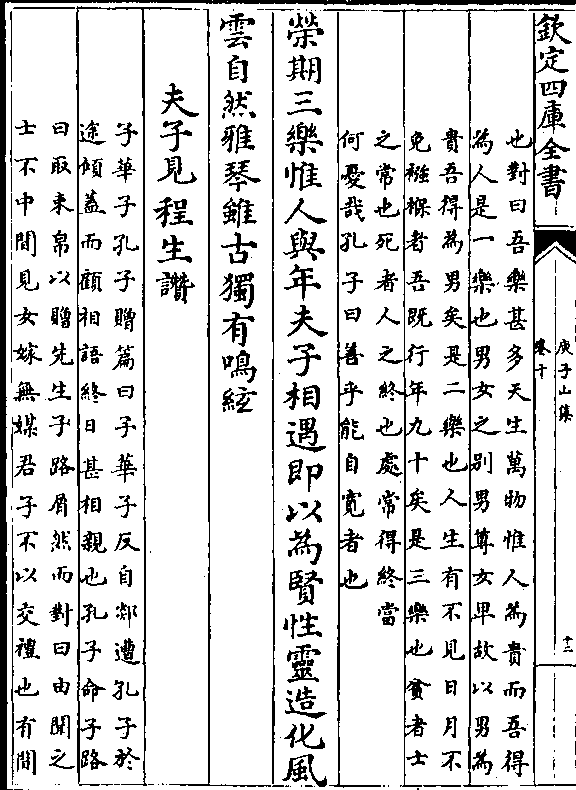 欽定四庫全書
庾子山集
卷十
十二
也對曰吾樂甚多天生萬物惟人為貴而吾得
為人是一樂也男女之別男尊女卑故以男為
貴吾得為男矣是二樂也人生有不見日月不
免襁褓者吾既行年九十矣是三樂也貧者士
之常也死者人之終也處常得終當
何憂哉孔子曰善乎能自寬者也
榮期三樂惟人與年夫子相遇即以為賢性靈造化風
雲自然雅琴雖古獨有鳴絃
夫子見程生讚
子華子孔子贈篇曰子華子反自郯遭孔子於
途傾蓋而顧相語終日甚相親也孔子命子路
曰取束帛以贈先生子路屑然而對曰由聞之
士不中間見女嫁無媒君子不以交禮也有間